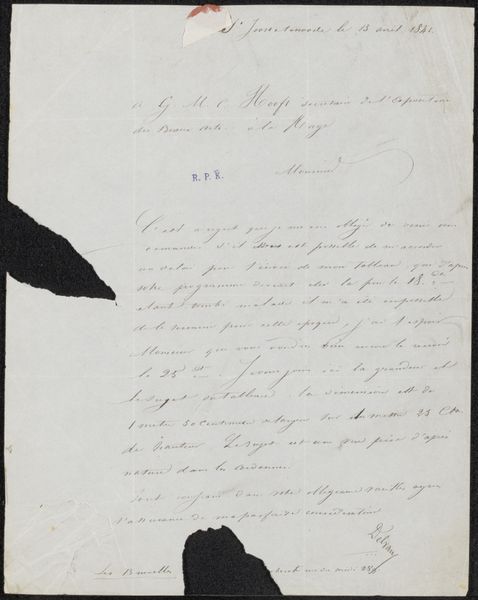 St Joostenoode le 13 avril 1841
a G. M. C Hooft secretaire de l'Exposition
des Beaux Arts. à la Haye
R. P. K.
Monsieur
C'est a regret que je me vois obligé de venir vous
demander s'il est possible de m'accorder
un delai pour l'envoi de mon tableau, qui d'apres
votre programme devrait etre la pour le 18.
etant tombé malade il m'a été impossible
de le terminer pour cette epoque, j'ai l'espoir
Monsieur que vous voudrez bien encore le recevoir
le 25 Je vous joins ici la grandeur et
le sujet du tableau. la dimension est de
1 metre 50 Centimes largeur sur un metre 23 Cts
de hauteur. Le sujet est une vue prise d'après
nature dans les ardennes
dont
votre obligeance veuillez agreer
l'assurance de ma parfaite consideration
Delvaux
Les Bruxelles